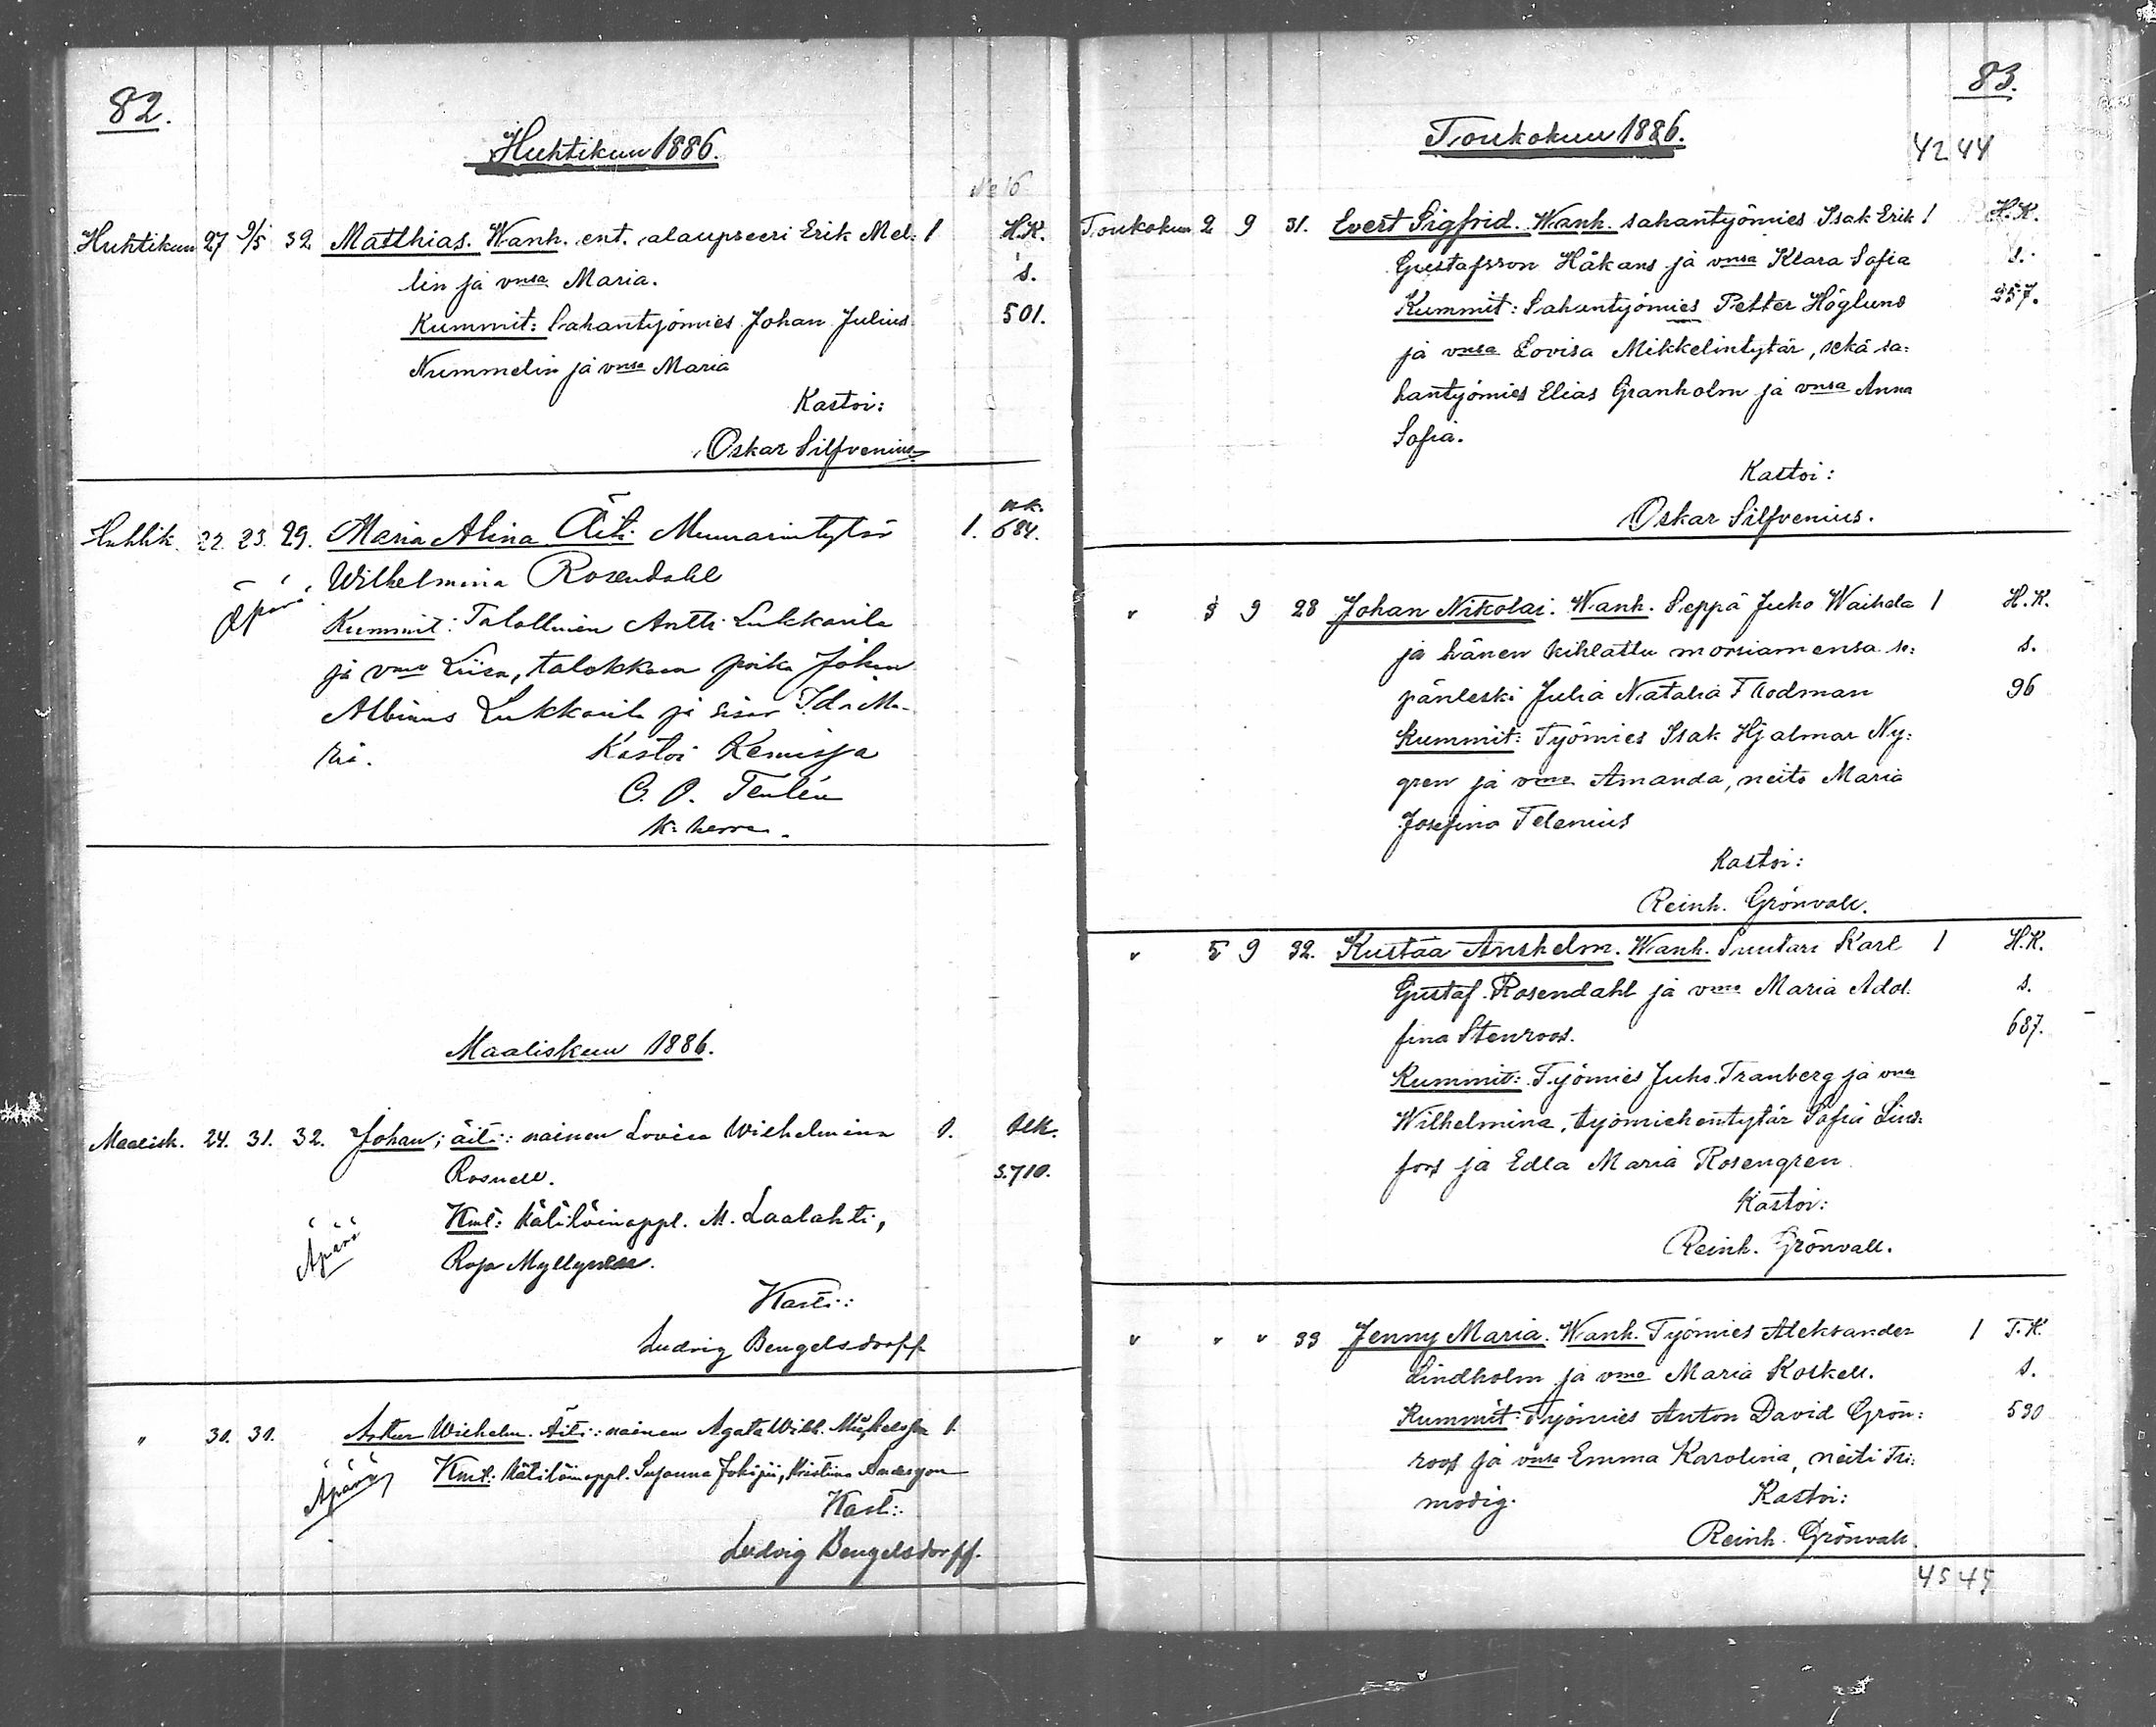 82.
Huhtikuu 1886.
No 16
Huhtikuu 27 9/5 32 Matthias. Wanh. ent. alaupseeri Erik Mel: 1 H.K.
lin ja vmsa Maria. s.
Kummit: Sahantyömies Johan Julius 501.
Nummelin ja vmsa Maria
Kastoi:
Oskar Silfvenius
Huhtik. 22. 23. 29. Maria Alina Äiti: Muurarintytär 1. 684.
Äpärä Wilhelmina Rosendahl
Kummit: Talollinen Antti Lukkarila
ja vmo Liisa, talokkaan poika Johan
Albinus Lukkarila ja sisar Ida Ma-
ria. Kastoi Kemissä
O. Tenlén
k: herra.
Maaliskuu 1886.
Maalisk. 24. 31. 32. Johan; äiti: nainen Lovisa Wilhelmina 1.
Rosnell. S. 710.
Äpärä Kmt: Kätilöinoppl. M. Laalahti,
Myllynen.
Kast.:
Ludvig Bengelsdorff
" 30. 31. Artur Wilhelm. Äiti: nainen Agata Wilh. 1.
Äpärä Kmt: Kätilöinoppl. Susanna Kristina Andersson
Kast:
Ludvig Bengelsdorff.
83.
Toukokuu 1886.
42 44
Toukokuu 2 9 31. Evert Sigfrid. Wanh. sahantyömies Isak Erik 1 H.K.
Gustafsson Håkans ja vmsa Klara Sofia s.
Kummit: Sahantyömies Petter Höglund 257.
ja vmsa Lovisa Mikkelintytär, sekä sa:
hantyömies Elias Granholm ja vmsa Anna
Sofia.
Kastoi:
Oskar Silfvenius.
" 9 28 Johan Nikolai. Wanh. Seppä Juho Waihela 1 H.K.
ja hänen kihlattu morsiamensa se: s.
pänleski Julia Natalia Flodman 96
Kummit: Työmies Isak Hjalmar Ny:
gren ja vmo Amanda, neito Maria
Josefina Telenius
Kastoi:
Reinh. Grönvall.
" 5 9 32. Kustaa Anshelm. Wanh. Suutari Karl 1 H.K.
Gustaf Rosendahl ja vmo Maria Adol: s.
fina Stenroos. 687.
Kummit: Työmies Juho Tranberg ja vmo
Wilhelmina, työmiehentytär Sofia Lind:
fors ja Edla Maria Rosengren
Kastoi:
Reinh. Grönvall.
" " " 33 Jenny Maria. Wanh. Työmies Aleksander 1 T.K.
Lindholm ja vmo Maria Koskell. s.
Kummit: Työmies Anton David Grön: 590
roos ja vmsa Emma Karolina, neiti Tri:
modig. Kastoi:
Reinh. Grönvall.
45 45